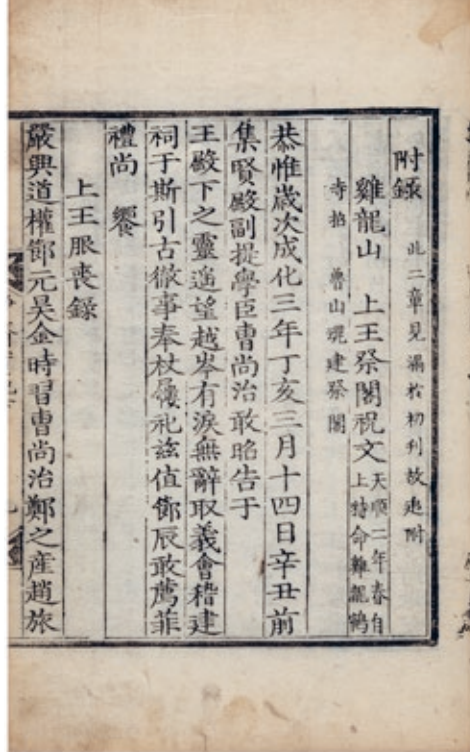 附錄 此二章見漏於初刋故追附
雞龍山 上王祭閣祝文 天順二年春自
上特命雞龍鶴
寺招 魯山魂建祭閣
恭惟歲次成化三年丁亥三月十四日辛丑前
集賢殿副提學臣曺尚治敢昭告于
王殿下之靈遥望越岑有淚無辭取義會稽建
祠于斯引古徹事奉杖屨祀玆值節辰敢薦菲
禮尚 饗
上王服喪錄
嚴興道權節元昊金時習曺尚治鄭之産趙旅